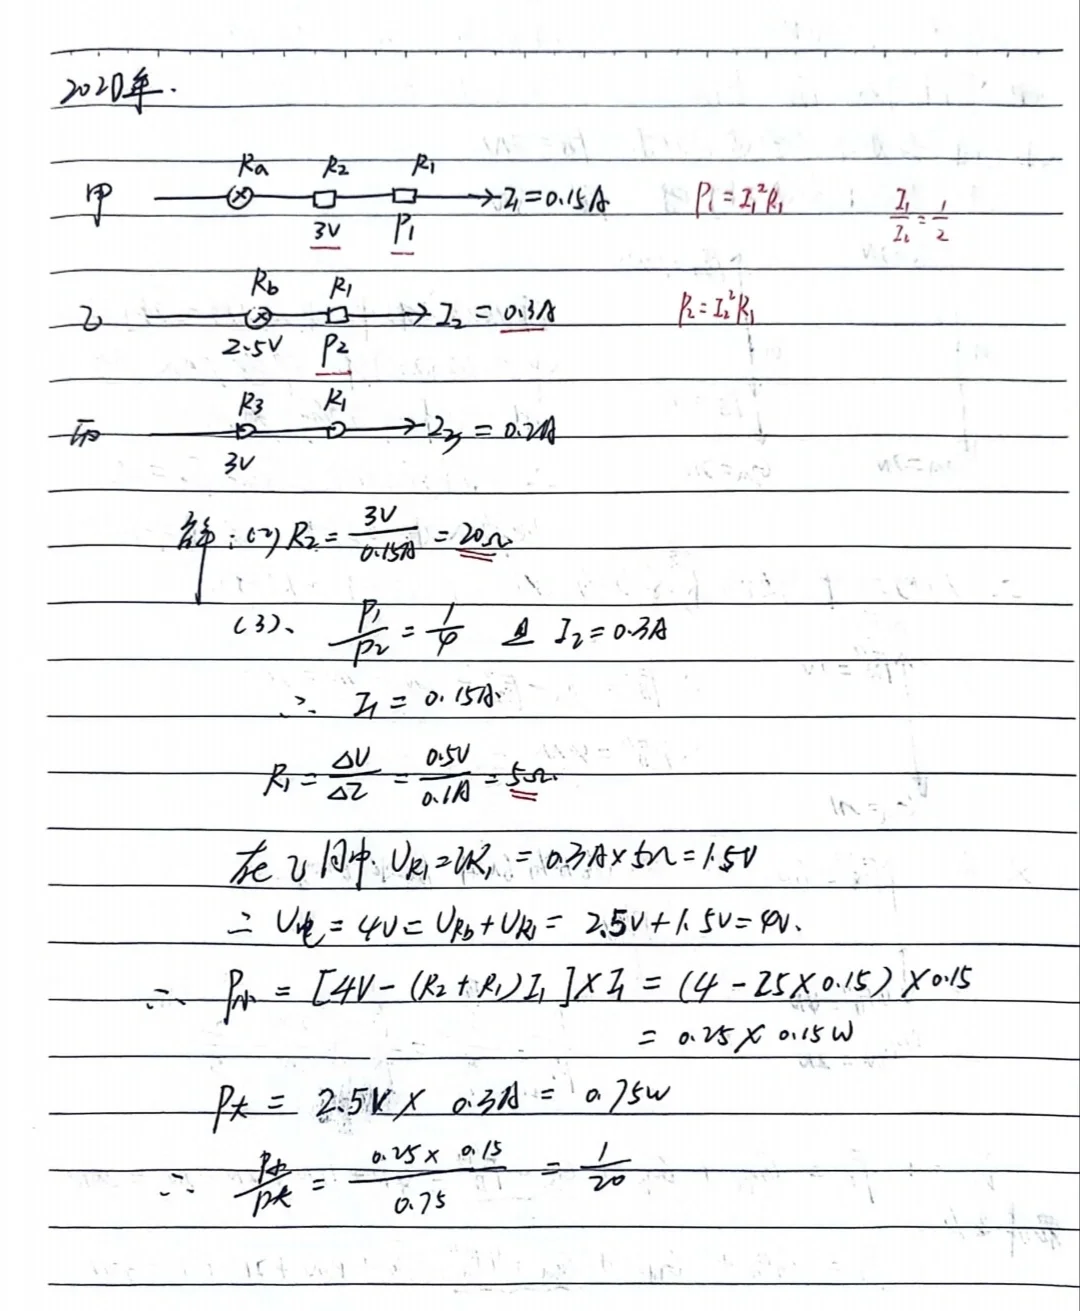 2020年.
甲 Ra R2 R1 I1=0.15A P1=I1²R1 I1/I2=1/2
3V P1
乙 Rb R1 I2=0.3A P2=I2²R1
2.5V P2
丙 R3 R1 I3=0.2A
3V
解:(2) R2=3V/0.15A=20Ω
(3)、P1/P2=1/4 且 I2=0.3A
∴ I1=0.15A.
R1=ΔU/ΔI=0.5V/0.1A=5Ω.
在乙图中.UR1=IR1=0.3A×5Ω=1.5V
∴ U电=4V=URb+UR1=2.5V+1.5V=4V.
∴ P小=[4V-(R2+R1)I1]×I1=(4-25×0.15)×0.15
=0.25×0.15W
P大=2.5V×0.3A=0.75W
∴ P小/P大=0.25×0.15/0.75=1/20